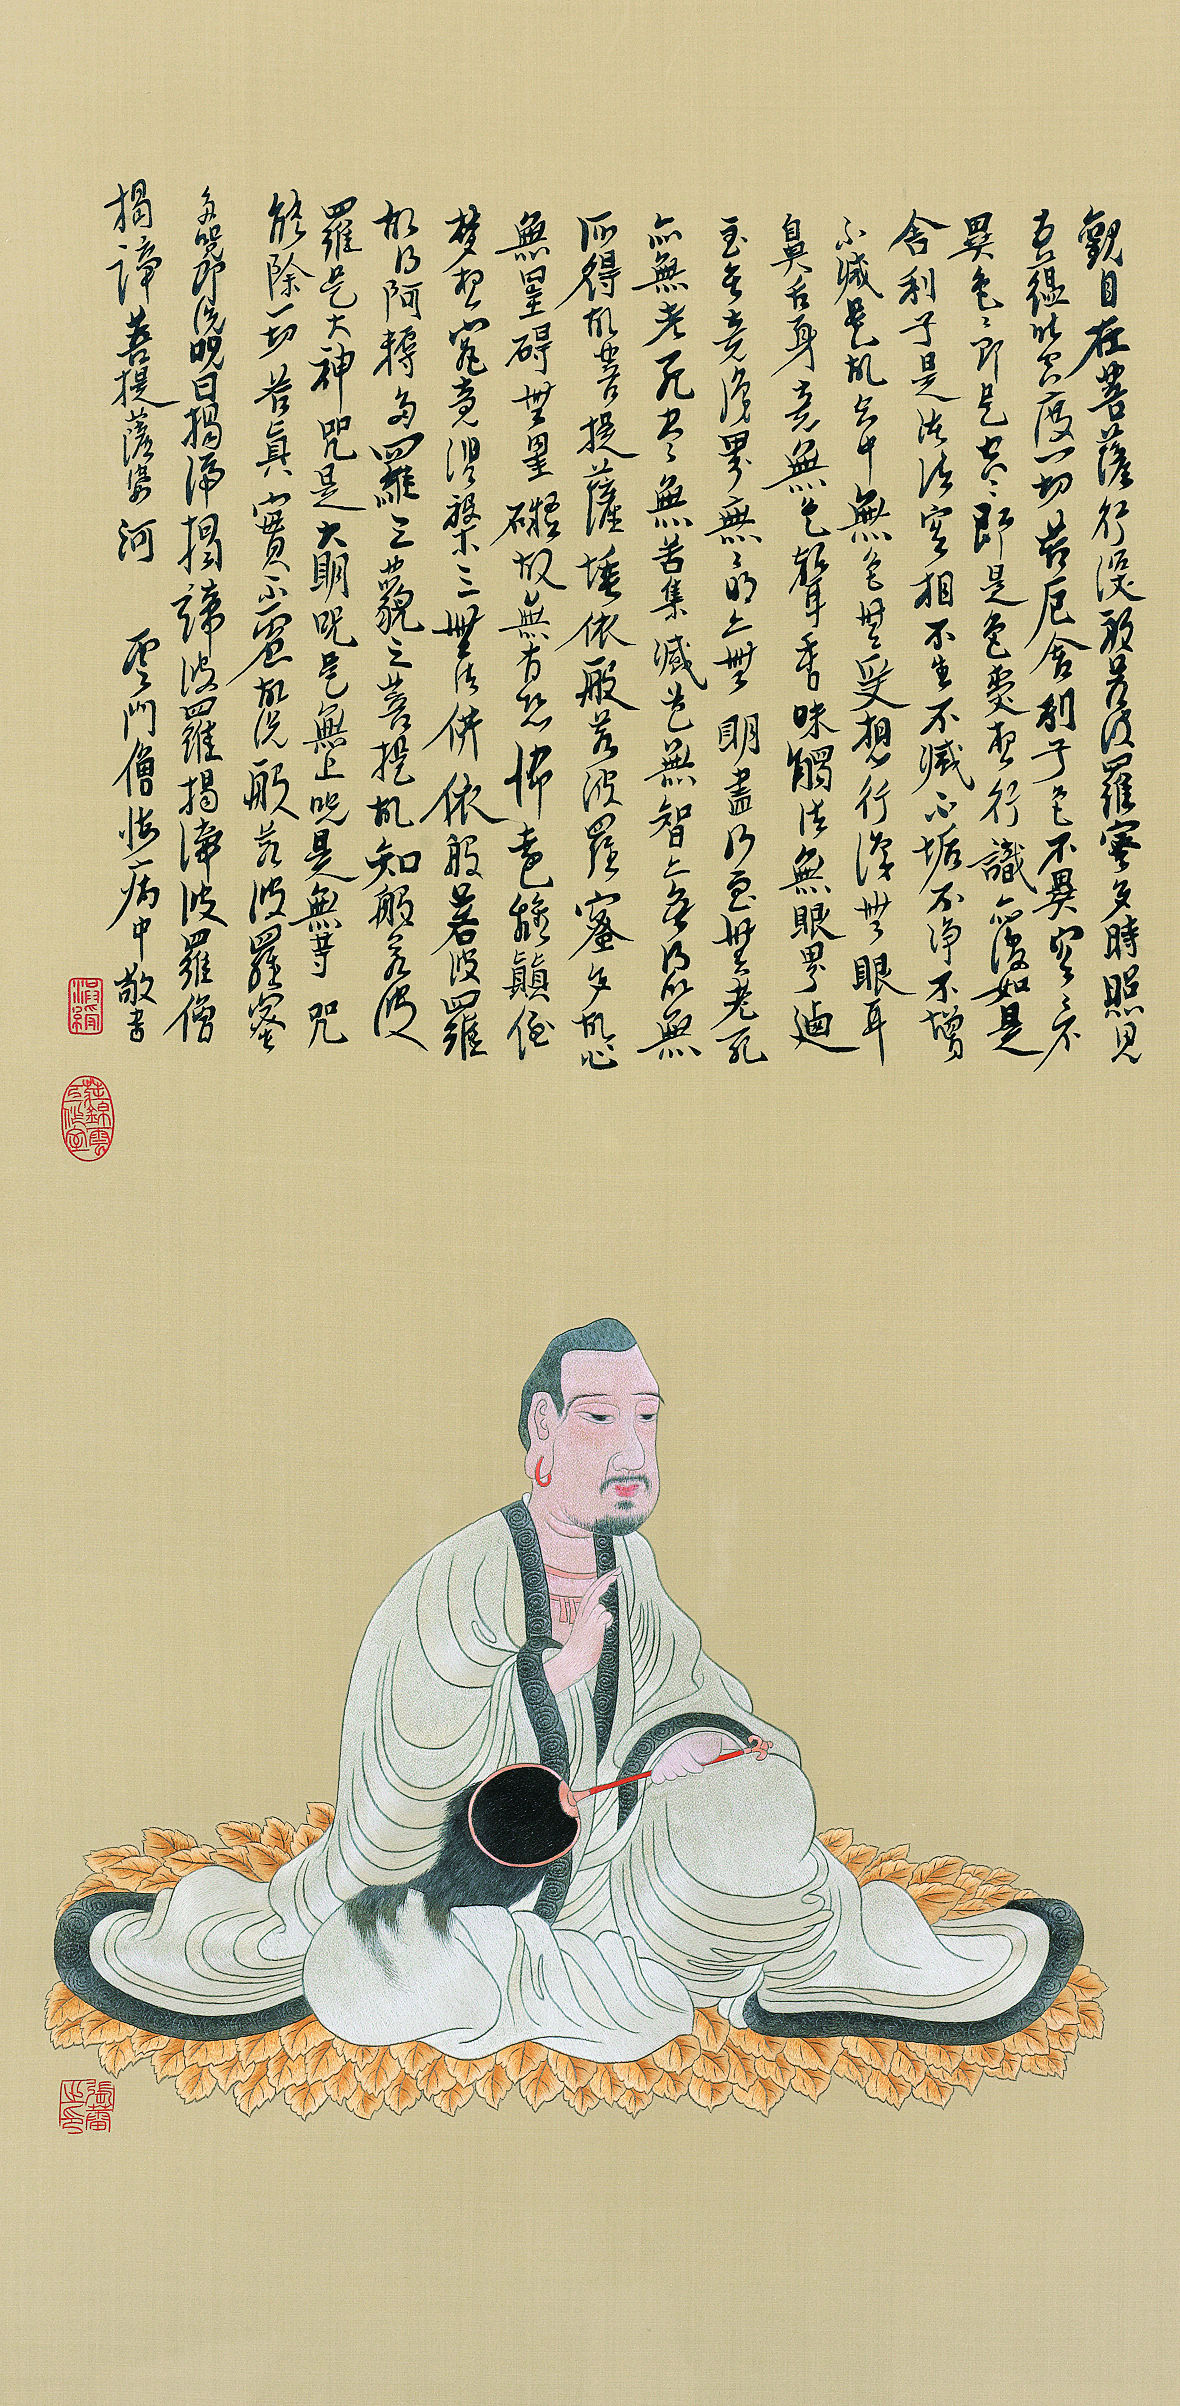 觀自在菩薩行深般若波羅蜜多時照見
五蘊皆空度一切苦厄舍利子色不異空空不
異色色即是空空即是色受想行識亦復如是
舍利子是諸法空相不生不滅不垢不淨不增
不滅是故空中無色無受想行識無眼耳
鼻舌身意無色聲香味觸法無眼界迺
至無意識界無無明亦無無明盡乃至無老死
亦無老死盡無苦集滅道無智亦無得以無
所得故菩提薩埵依般若波羅蜜多故心
無罣礙無罣礙故無有恐怖遠離顛倒
夢想究竟涅槃三世諸佛依般若波羅
故得阿耨多羅三藐三菩提故知般若波
羅是大神咒是大明咒是無上咒是無等咒
能除一切苦真實不虛故說般若波羅蜜
多咒即說咒曰揭諦揭諦波羅揭諦波羅僧
揭諦菩提薩婆訶 雲門僧悟病中敬書
淑繡
張蕾之印